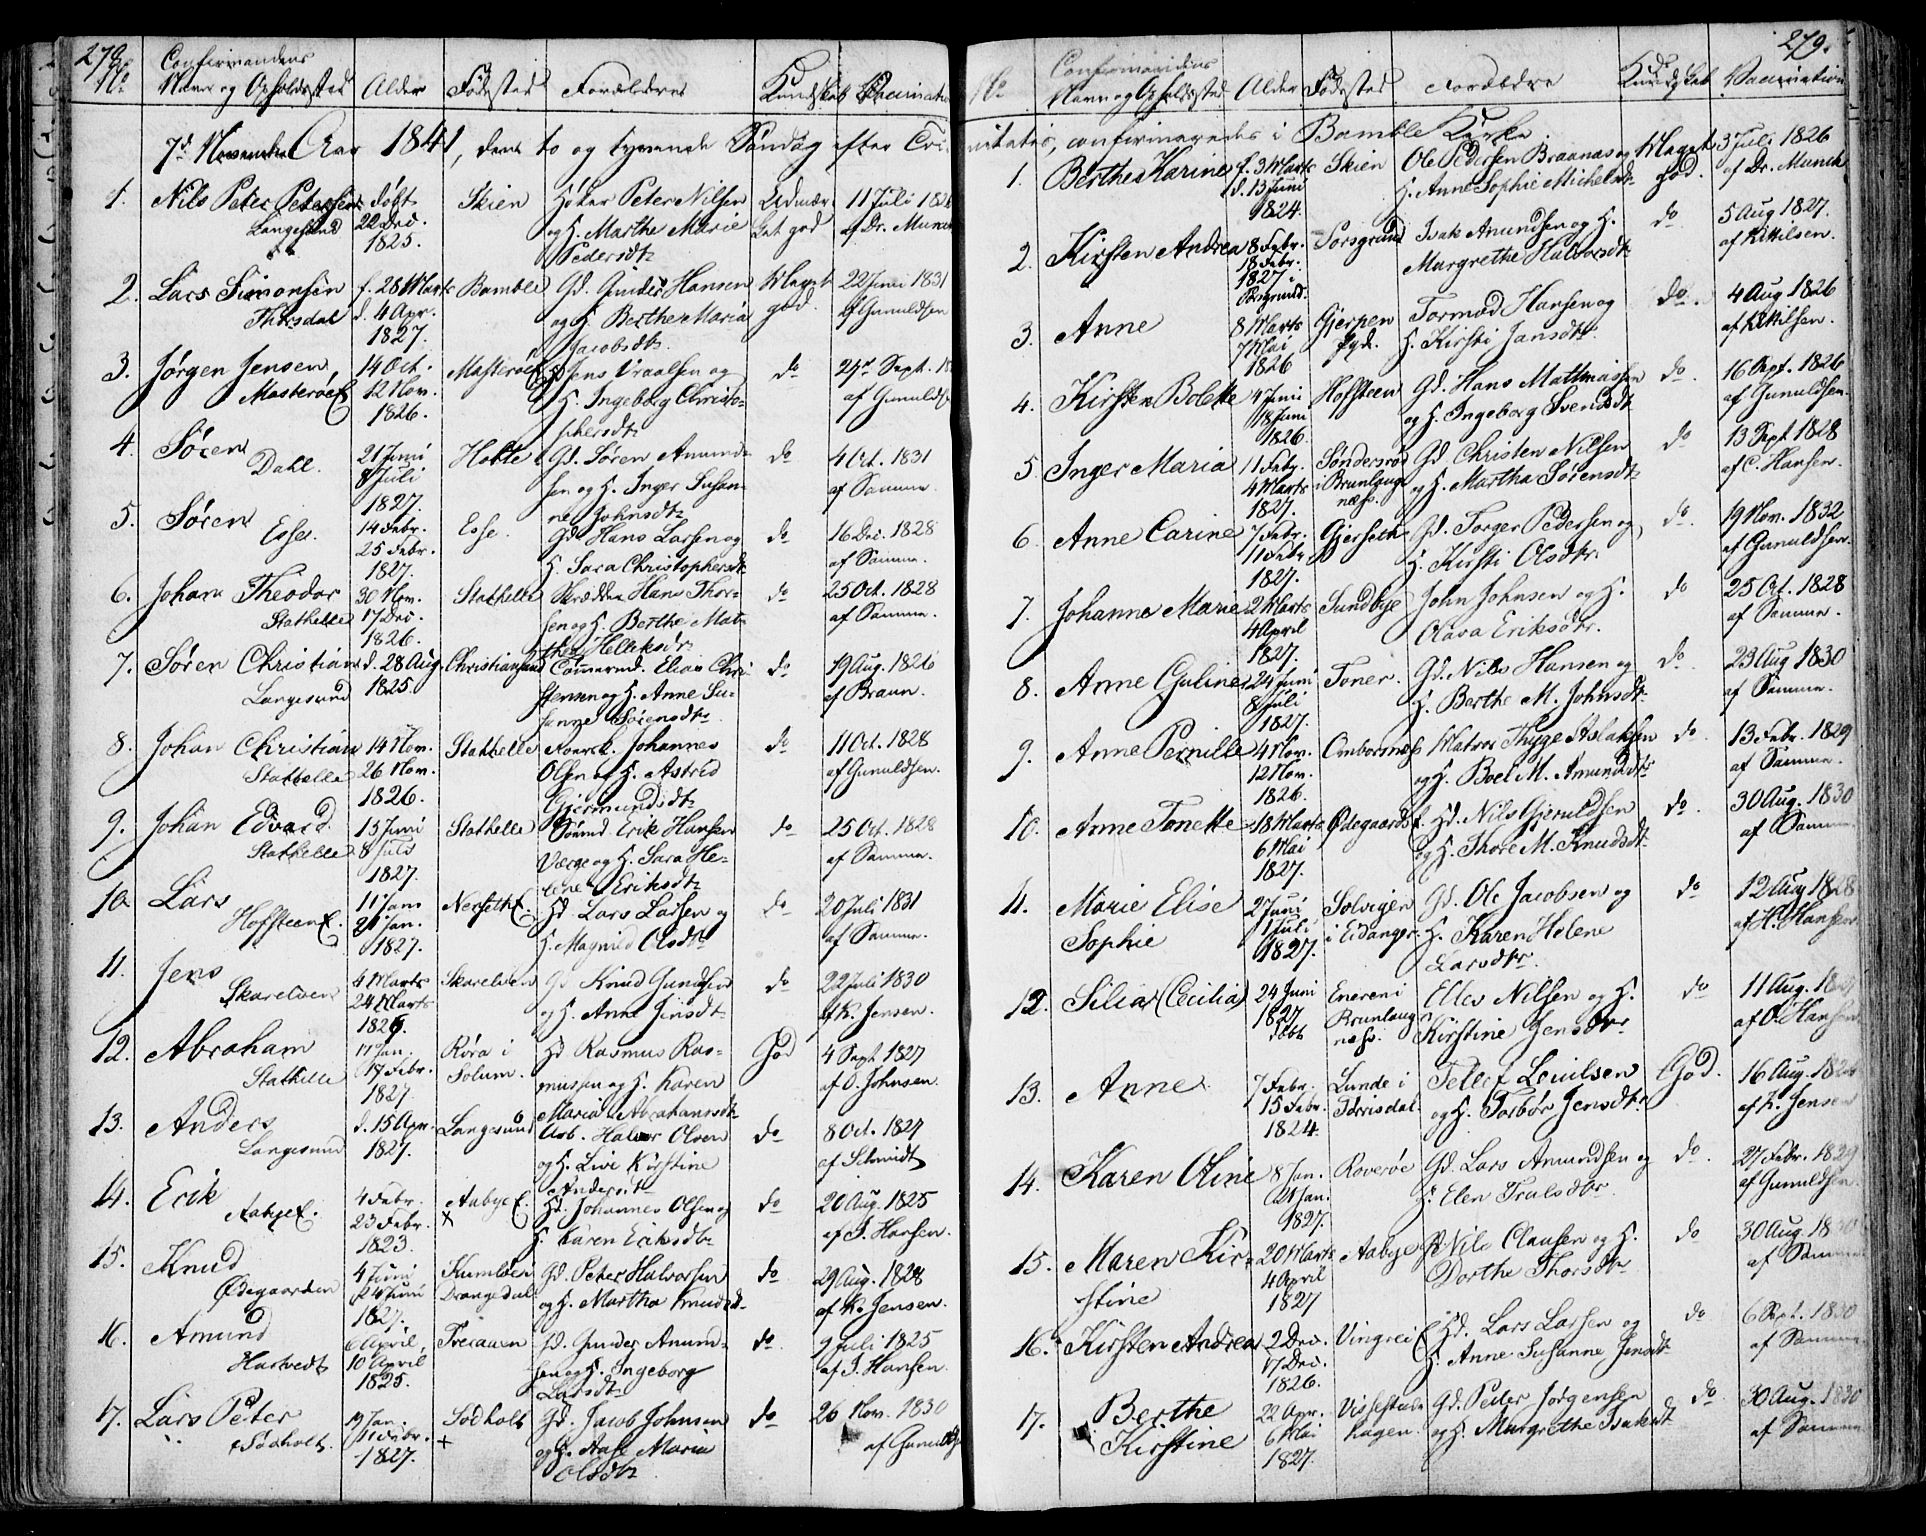 278.
Confirmandens
No Navn og Opholdssted Alder Fødested Forældrene Kundskab Vaccination
7d November Aar 1841, den to og tyvende Søndag efter Tri-
1. Nils Peter Petersen døbt Skien Høker Peter Nilsen Udmær- 11 Juli 1826
Langesund 22 Dec. og H. Marthe Marie ket god af Dr. Munch
1825. Pedersdtr
2. Lars Simonsen f. 28 Marts Bamble Gd. Gunder Hansen Meget 22 Juni 1831
Thorsdal d. 4 Apr. og H. Berthe Maria god. af Gunuldsen
1827. Jacobsdtr
3. Jørgen Jensen, 14 Oct. Jens Vraalsen og do 27de Sept.
Masterøe 12 Nov. H. Ingeborg Christo- af Gunulds
1826. phersdtr
4. Søren 21 Juni Holte Gd. Søren Amund- do 4 Oct. 1831
Dahl. 8 Juli sen og H. Inger Susan- af Samme.
1827. ne Johnsdtr
5. Søren 14 Febr. Esse. Gd. Hans Larsen og do 16 Dec. 1828
Esse. 25 Febr. H. Sara Christophersdtr af Samme.
1827.
6. Johan Theodor 30 Nov. Stathelle Skrædder Hans Thor- do 25 Oct. 1828
Stathelle 17 Dec. sen og H. Berthe Mat- af Samme.
1826. thea Helliksdr
7. Søren Christian d. 28 Aug. Christiansund Elias Chri- do 19 Aug. 1826
Langesund 1825. stensen og H. Anne Su- af Braun.
sanne Sørensdtr
8. Johan Christian 14 Nov. Stathelle Johannes do 11 Oct. 1828
Stathelle 26 Nov. Olsen og H. Astrid af Gunuldsen.
1826. Gjermundsdtr
9. Johan Edvard 13 Juni Stathelle Sømd Erik Hansen do 25 Oct. 1828
Stathelle 8 Juli Værge og H. Sara He- af Samme.
1827. lene Eriksdtr
10. Lars 11 Jan Nerseth E. Hd Lars Larsen og do 20 Juli 1831
Hofsteen E. 21 Jan. H. Magnild Olsdtr af Samme.
1827.
11. Jens 4 Marts Skarelven Gd Knud Gundersen do 22 Juli 1830
Skarelven 24 Marts og H. Anne Jensdtr af K. Jensen.
12. Abraham 17 Jan. Røra i Hd Rasmus Ras- God 4 Sept 1827
Stathelle 18 Febr. Solum. mussen og H. Karen af O. Johnsen.
1827. Maria Abrahamsdtr
13. Anders d. 15 Apr. Langesund Arb. Halvor Olsen do 8 Oct. 1827
Langesund 1827. og H. Live Kirstine af Schmidt
Andersdtr
14. Erik 4 Febr. Aabye E. Hd. Johannes Olsen og do 20 Aug. 1825
Aabye E. 23 Febr. × H. Karen Eriksdtr af I. Hansen.
1823.
15. Knud 4 Juni Kumløs i Gd. Peter Halvorsen do 29 Aug. 1828
Ødegaarden 24 Juni Drangedal og H. Martha Knudsd. af K. Jensen.
1827.
16. Amund 6 April, Treiaaen Gd. Gunder Amund- do 9 Juli 1825
Hartvedt 10 April sen og H. Ingeborg af I. Hansen.
1825. Larsdtr
17. Lars Peter 19 Jan. Sødholt Gd. Jacob Johnsen do 26 Nov. 1830
Sødholt. 11 Febr. × og H. Aase Maria af Gunulds
1827. Olsdtr
279.
Confirmandens
No Navn og Opholdssted Alder Fødested Forældre Kundskab Vaccination
nitatis, confirmeredes i Bamble Kirke.
1. Berthe Karine f. 3 Marts Skien Ole Pedersen Braanaas og Meget 3 Juli 1826
d. 13 Juni H. Anne Sophie Michelsdtr god. af Dr. Munch
1824.
2. Kirsten Andrea 8 Febr. Porsgrund Isak Amundsen og H. do 5 Aug 1827.
18 Febr. Margrethe Halvorsdtr af Kittilsen.
1827 i
Porsgrund.
3. Anne 8 Marts Gjerpen Tormod Hansen og do. 4 Aug 1826
7 Mai H. Kirsti Jansdtr. af Kittilsen.
1826
4. Kirsten Bolette 4 Juni Hofsteen Gd. Hans Mathiassen do 16 Sept. 1826
18 Juni og H. Ingeborg Svendsdtr af Gunuldsen.
1826.
5. Inger Maria 11 Feby. Søndersrød Gd Christen Nilsen do 13 Sept 1828
4 Marts i Brunlaug- og H. Martha Sørensdtr af C. Hansen.
1827. næss.
6. Anne Carine 7 Febr. Gjerseth Gd. Torger Pedersen og do. 19 Nov. 1832
11 Feby H. Kirsti Olsdtr. af Gunuldsen.
1827.
7. Johanne Marie 2 Marts Sundbye John Johnsen og H. do 25 Oct. 1828
4 April Olava Eriksdtr. af Samme.
1827.
8. Anne Guline 24 Juni Toner. Gd. Nils Hansen og do 23 Aug 1830
8 Juli H. Berthe M. Johnsdtr af Samme.
1827.
9. Anne Pernille 4 Nov. Omborsnæs Matros Thyge Aslaksen do 13 Febr. 1829
12 Nov. og H. Boel M. Amundsdtr af Samme.
1826.
10. Anne Tonette 18 Marts Ødegaards E. Hd. Nils Gjeruldsen do 30 Aug. 1830
6 Mai og H. Thore M. Knudsdtr. af Samme
1827.
11. Marie Elise 27 Juni Solvigen Gd. Ole Jacobsen og do 12 Aug 1828
Sophie 1 Juli i Eidanger H. Karen Helene af H. Hansen
1827. Larsdtr.
12. Silia (Cecilia) 24 Juni Eneren i Elles Nilsen og H. do 11 Aug.
1827 Brunlaug- Kirstine Jensdtr af O. Hansen
døbt næss.
13. Anne 7 Febr. Lunde i Tellef Leuilsen God. 16 Aug.
15 Febr. Tørrisdal. og H. Torbør Jensdtr af K. Jensen
1824.
14. Karen Oline 8 Jan. Roverøe Gd. Lars Amundsen og do. 27 Febr. 1829
21 Jan. H. Elen Trulsdtr. af Gunuldsen.
1827.
15. Maren Kir- 20 Marts Aabye Gd Nils Clausen og H. do 30 Aug. 1830
stine 4 April Dorthe Thorsdtr af Samme
1827
16. Kirsten Andrea 2 Dec. Vingrei E. Hd. Lars Larsen og do 6 Sept. 1830
17 Dec. H. Anne Susanne Jensdtr. af Samme
1826.
17. Berthe 22 Apr. Vissestad- Gd. Peder Jørgensen do 30 Aug. 1830
Kirstine 6 Mai hagen. og H. Margrethe Isaksdt. af Samme
1827.